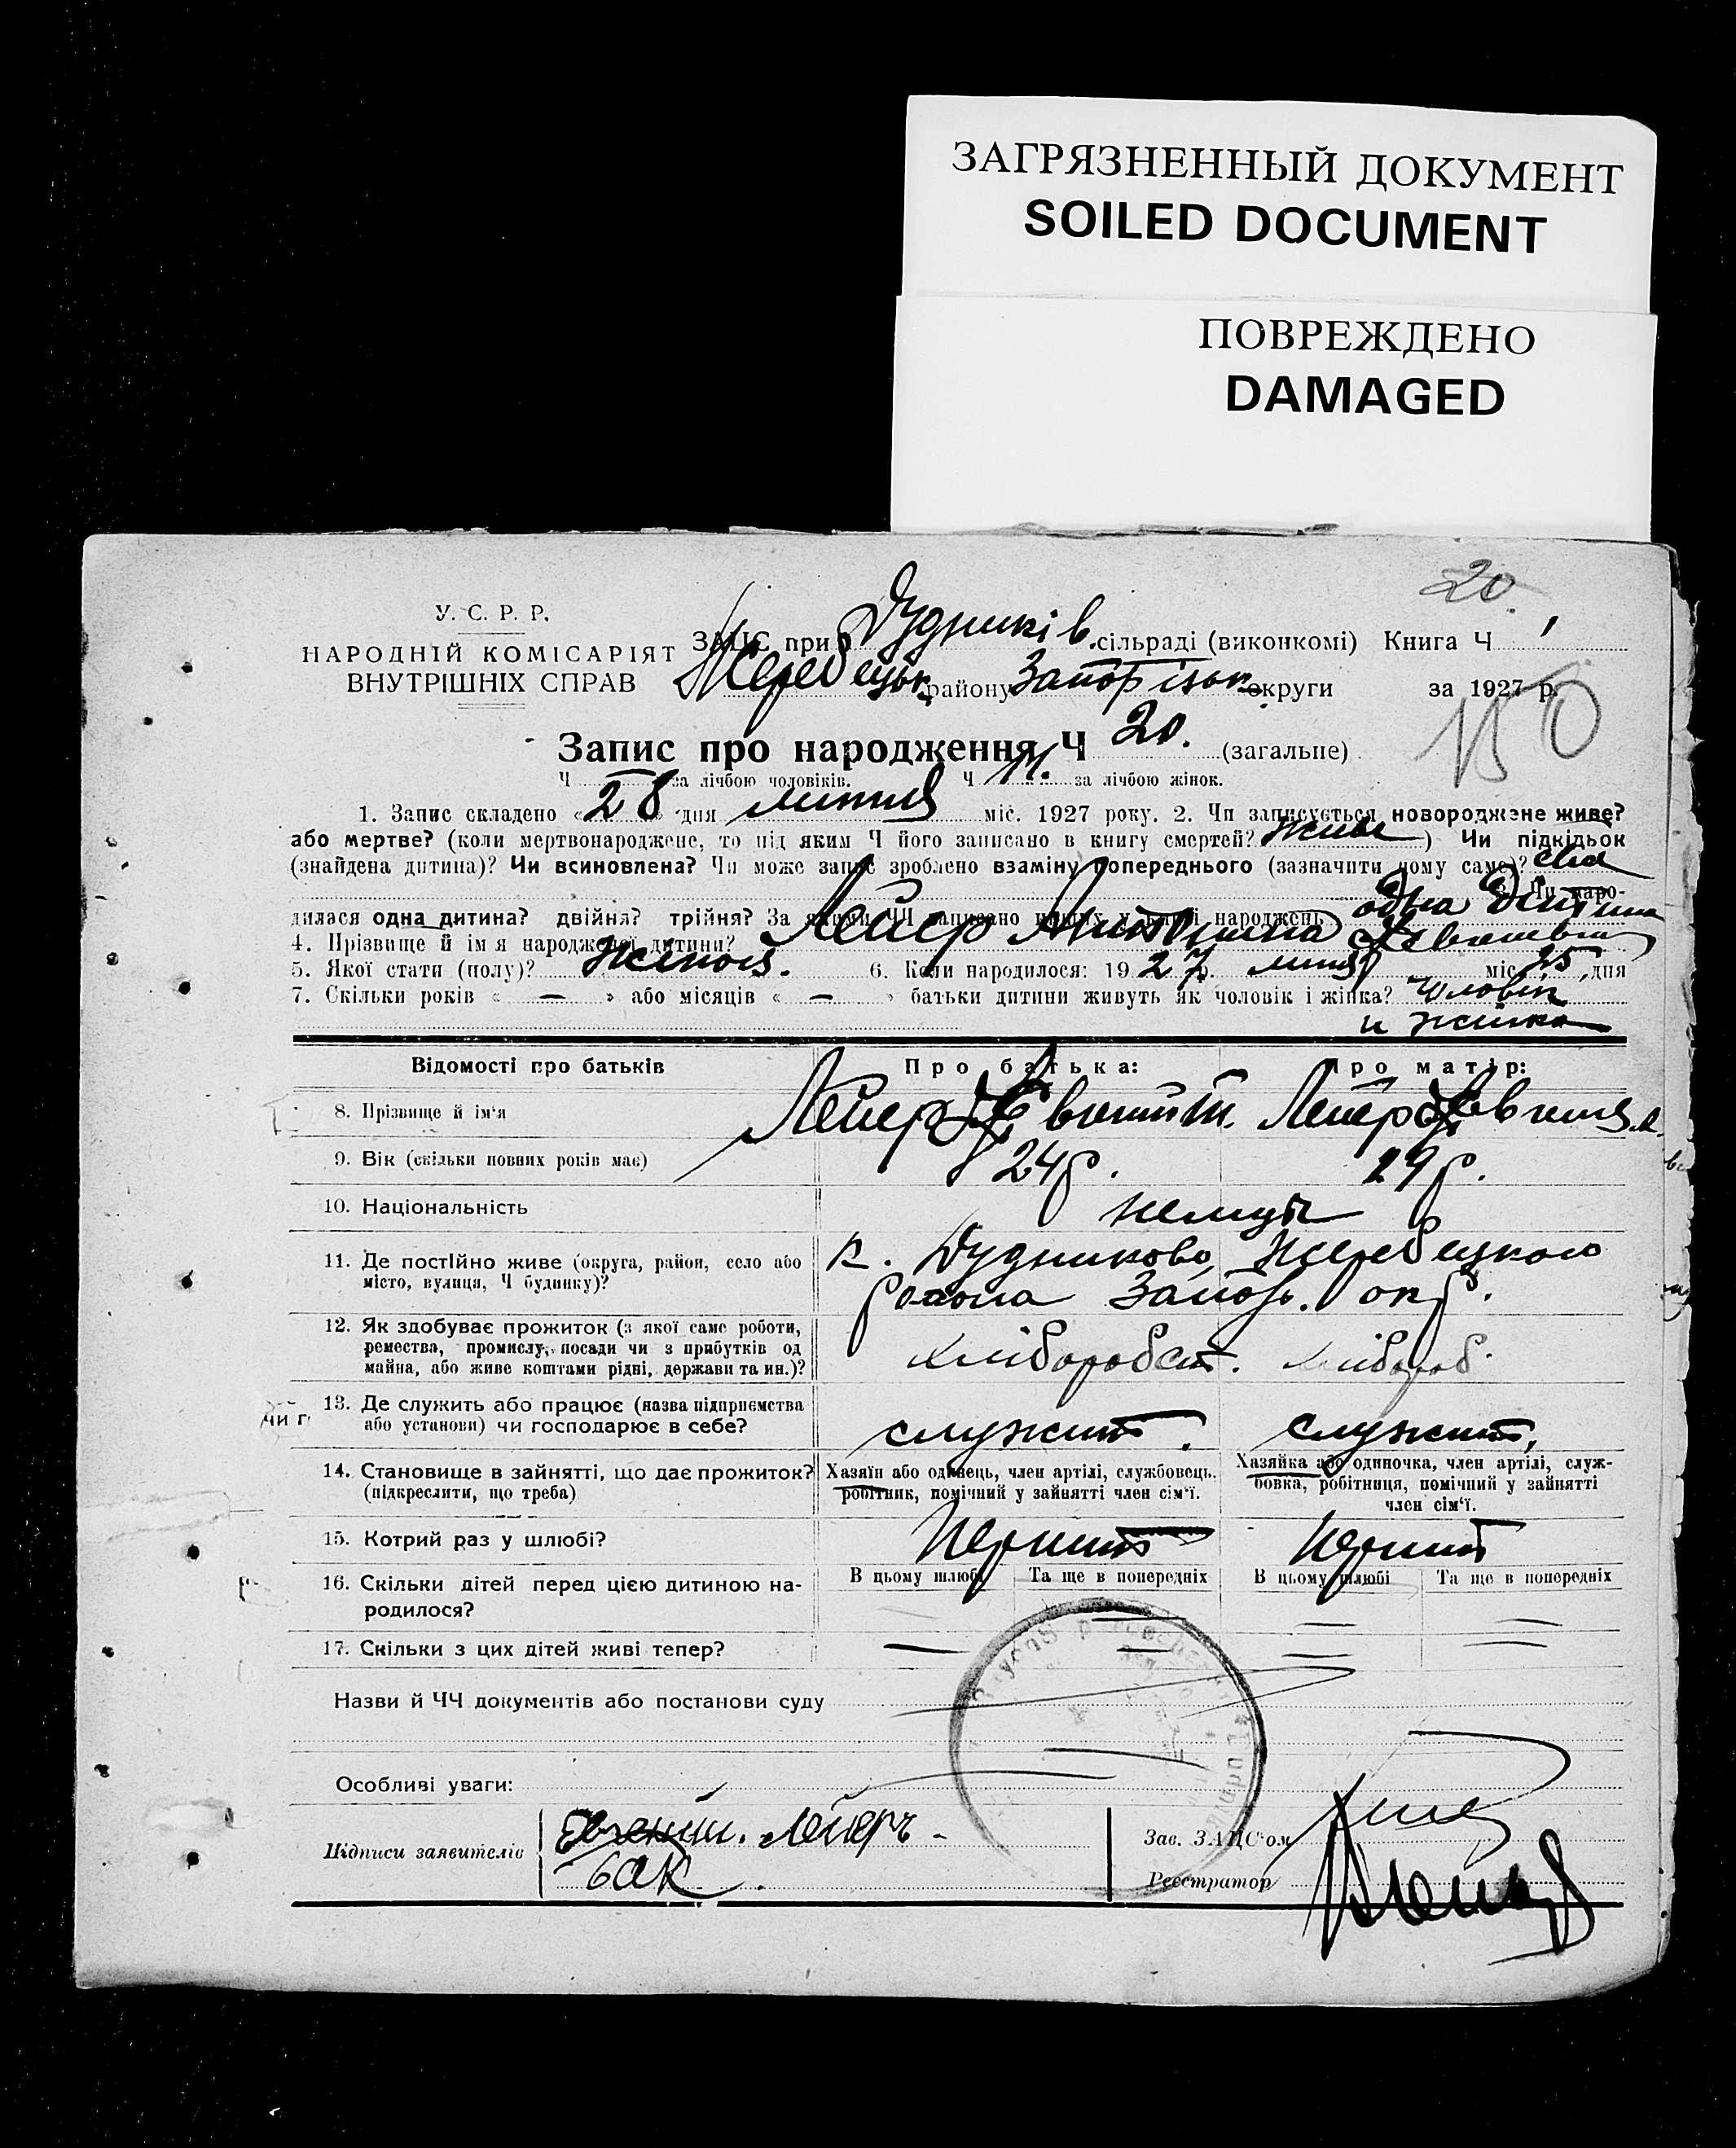 ЗАГРЯЗНЕННЫЙ ДОКУМЕНТ
SOILED DOCUMENT
ПОВРЕЖДЕНО
DAMAGED
20
У. С. Р. Р.
НАРОДНІЙ КОМІСАРІЯТ
ВНУТРІШНІХ СПРАВ
ЗАГС при Дудників. сільраді (виконкомі) Книга Ч 1
Жеребецьк. району Запоріськ. округи за 1927 р.
150
Запис про народження Ч 20. (загальне)
Ч за лічбою чоловіків. Ч 11. за лічбою жінок.
1. Запис складено «28» дня липня міс. 1927 року. 2. Чи записується новороджене живе?
або мертве? (коли мертвонароджене, то під яким Ч його записано в книгу смертей? живе) Чи підкідьок
(знайдена дитина)? Чи всиновлена? Чи може запис зроблено взаміну попереднього (зазначити чому саме)?
3. Чи наро-
дилася одна дитина? двійня? трійня? За якими ЧЧ записано инших у книзі народжень одна дитина
4. Прізвище й ім'я народженої дитини? Лейер
5. Якої стати (полу)? Жіноч. 6. Коли народилося: 1927 р. липня міс. 25 дня
7. Скільки років « — » або місяців « — » батьки дитини живуть як чоловік і жінка? чоловік
и жінка
Відомості про батьків Про батька: Про матір:
8. Прізвище й ім'я Лейер Лейер
9. Вік (скільки повних років має) 24 р. 29 р.
10. Національність немци
11. Де постійно живе (округа, район, село або к. Дудниково, Жеребецкого
місто, вулиця, Ч будинку)? района Запор. окр.
12. Як здобуває прожиток (з якої саме роботи,
ремества, промислу, посади чи з прибутків од хлібороб
майна, або живе коштами рідні, держави та ин.)?
13. Де служить або працює (назва підприємства
або установи) чи господарює в себе? служит. служит,
14. Становище в зайнятті, що дає прожиток? Хазяїн або одинець, член артілі, службовець. Хазяйка або одиночка, член артілі, служ-
(підкреслити, що треба) робітник, помічний у зайнятті член сім'ї. бовка, робітниця, помічний у зайнятті
член сім'ї.
15. Котрий раз у шлюбі?
16. Скільки дітей перед цією дитиною на- В цьому шлюбі Та ще в попередніх В цьому шлюбі Та ще в попередніх
родилося?
17. Скільки з цих дітей живі тепер?
Назви й ЧЧ документів або постанови суду
Особливі уваги:
Підписи заявителів Евгений. Лейеръ
Зав. ЗАГС'ом
Реєстратор